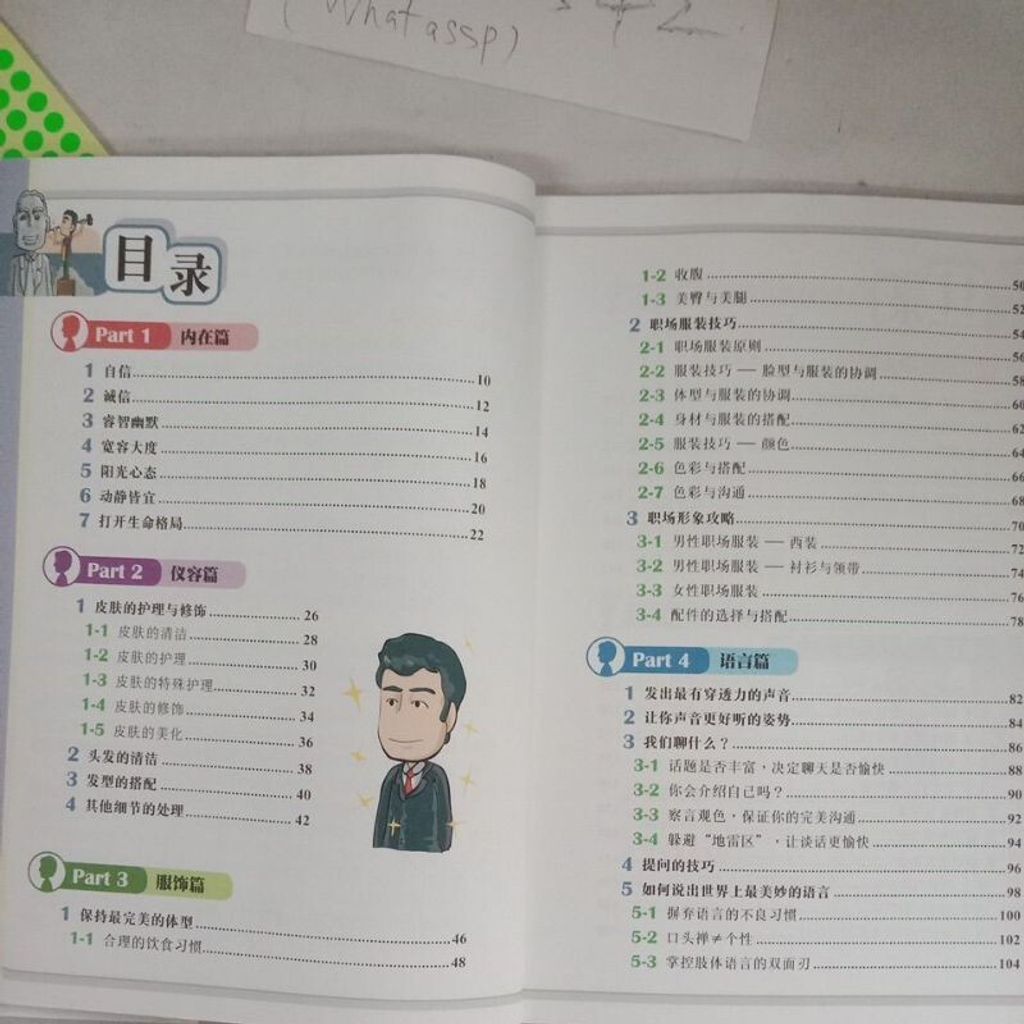 (Whatassp)
目录
Part 1 内在篇
1 自信 10
2 诚信 12
3 睿智幽默 14
4 宽容大度 16
5 阳光心态 18
6 动静皆宜 20
7 打开生命格局 22
Part 2 仪容篇
1 皮肤的护理与修饰 26
1-1 皮肤的清洁 28
1-2 皮肤的护理 30
1-3 皮肤的特殊护理 32
1-4 皮肤的修饰 34
1-5 皮肤的美化 36
2 头发的清洁 38
3 发型的搭配 40
4 其他细节的处理 42
Part 3 服饰篇
1 保持最完美的体型 46
1-1 合理的饮食习惯 48
1-2 收腹 50
1-3 美臀与美腿 52
2 职场服装技巧 54
2-1 职场服装原则 56
2-2 服装技巧 — 脸型与服装的协调 58
2-3 体型与服装的协调 60
2-4 身材与服装的搭配 62
2-5 服装技巧 — 颜色 64
2-6 色彩与搭配 66
2-7 色彩与沟通 68
3 职场形象攻略 70
3-1 男性职场服装 — 西装 72
3-2 男性职场服装 — 衬衫与领带 74
3-3 女性职场服装 76
3-4 配件的选择与搭配 78
Part 4 语言篇
1 发出最有穿透力的声音 82
2 让你声音更好听的姿势 84
3 我们聊什么？ 86
3-1 话题是否丰富，决定聊天是否愉快 88
3-2 你会介绍自己吗？ 90
3-3 察言观色，保证你的完美沟通 92
3-4 躲避“地雷区”，让谈话更愉快 94
4 提问的技巧 96
5 如何说出世界上最美妙的语言 98
5-1 摒弃语言的不良习惯 100
5-2 口头禅≠个性 102
5-3 掌控肢体语言的双面刃 104